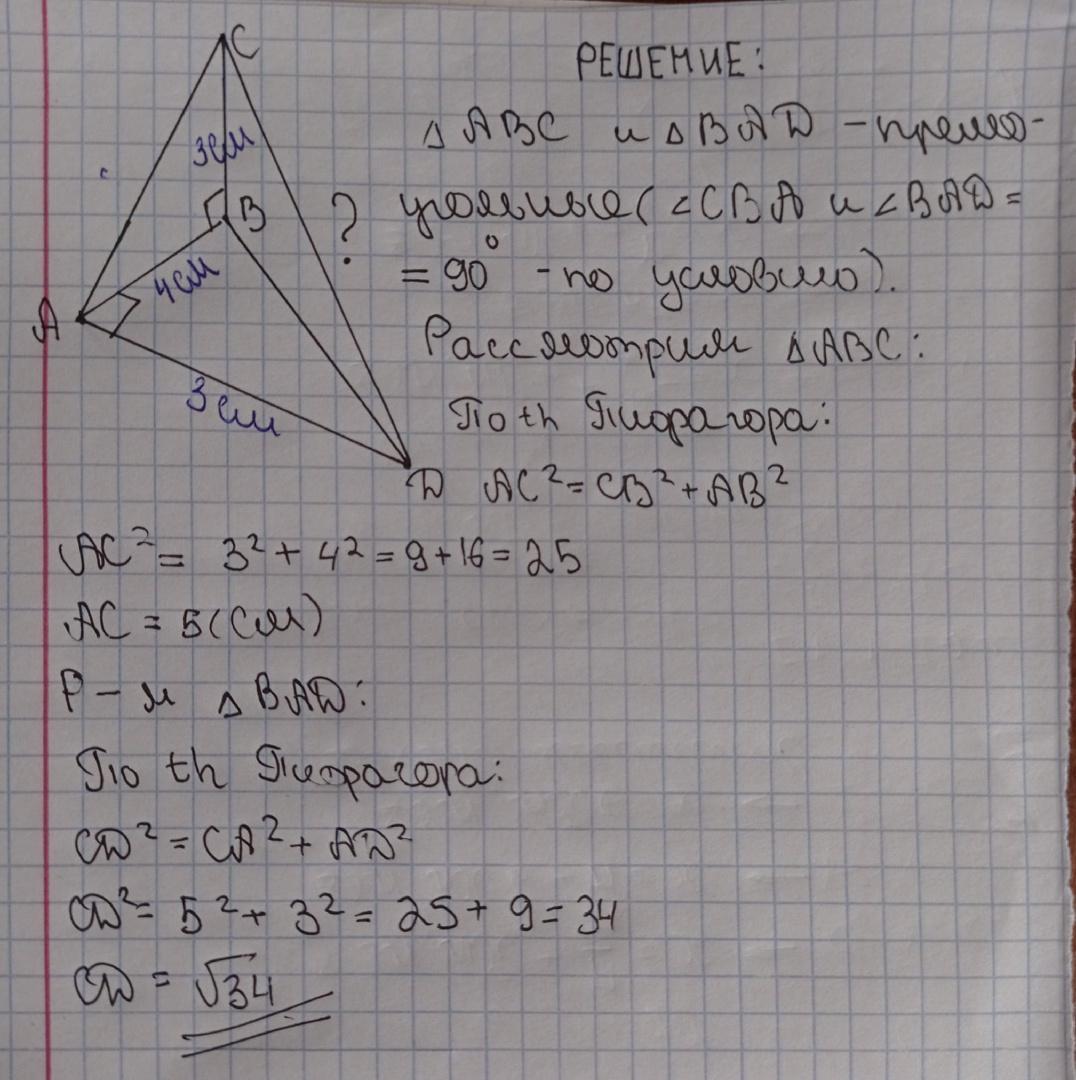 C
РЕШЕНИЕ:
△ABC и △BAD - прямо-
3см
B
?
угольные (∠CBA и ∠BAD =
= 90° - по условию).
4см
A
Рассмотрим △ABC:
3см
По th Пифрагора:
D
AC² = CB² + AB²
AC² = 3² + 4² = 9 + 16 = 25
AC = 5 (см)
Р-м △BAD:
По th Пифрагора:
CD² = CA² + AD²
CD² = 5² + 3² = 25 + 9 = 34
CD = √34